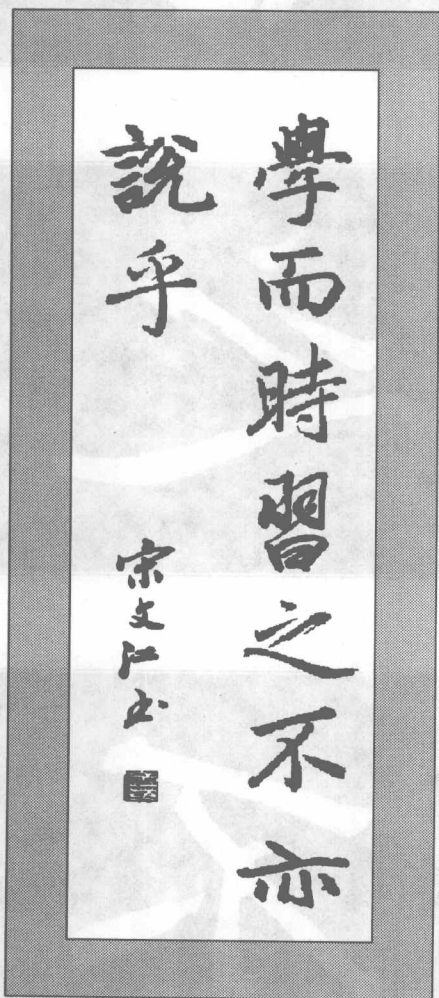 學而時習之不亦
說乎
宋文江书